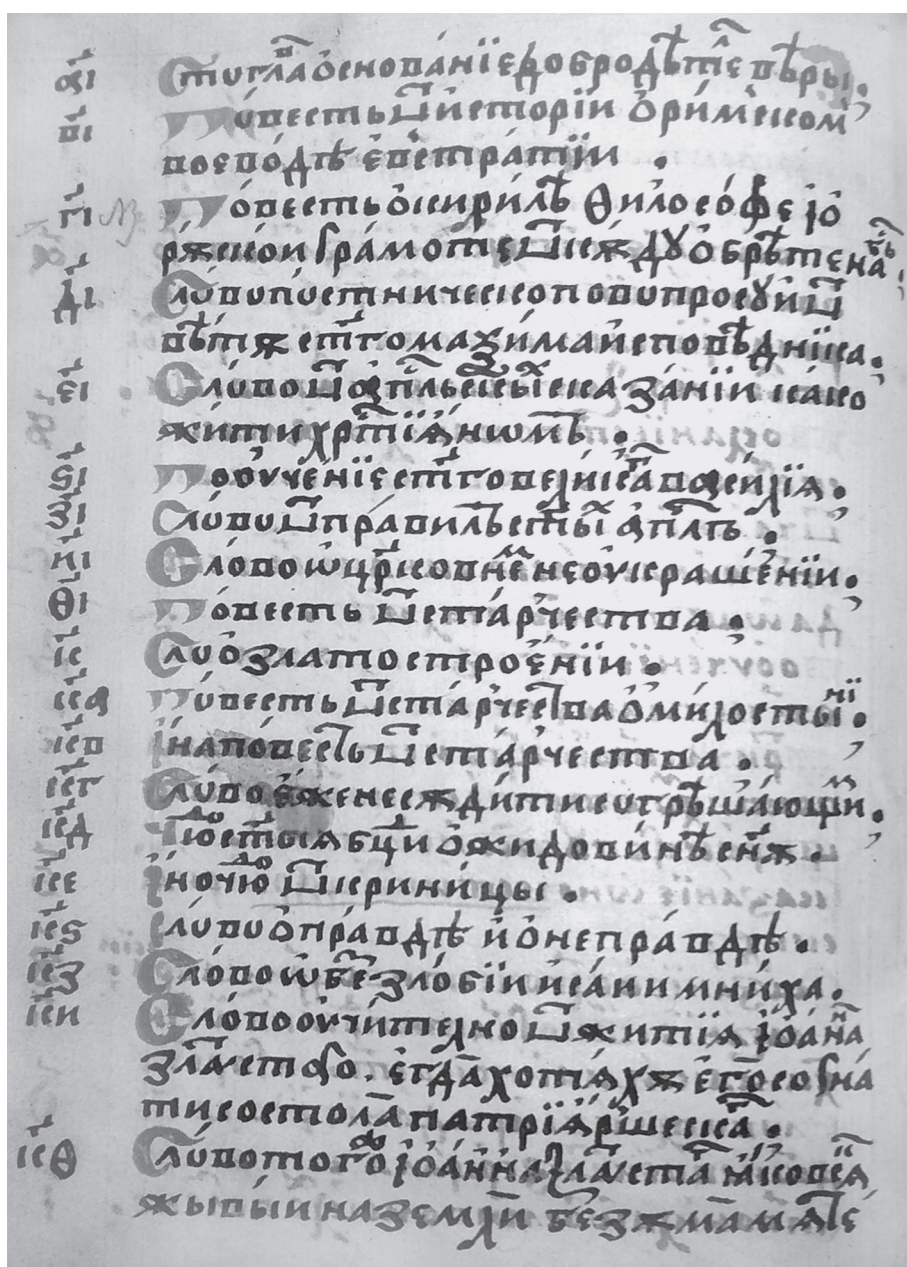 а҃і Сту гла҃в ѻснова́нїе добродѣ́т҃е вѣры.
в҃і По́весть ѿ и҆сторі́и ѻ ри́мском
воево́дѣ е҆встра́тїи .
г҃і По́весть ѻ кири́лѣ ѳило́софе і о҆
рѫ́ской гра́моте ѿ кѫдꙋ ѻбрѣ́тена
д҃і Сло́во по́стническо по вопро́сꙋ и ѿ
вѣ́тѫ ст҃го макзи́ма и҆спове́дника.
е҃і Сло́во ѿ а҆п҃льскы́ сказа́нїи ка́ко
жи́ти хрⷭ҇тїꙗ́ном .
ѕ҃і Пооуче́нїе ст҃го вели́ка васи́лїꙗ .
з҃і Сло́во ѿ пра́вилъ ст҃ы а҆п҃лъ .
и҃і Сло́во ѡ цр҃ко́внѣ неоукраше́нїи.
ѳ҃і По́весть ѿ ста́рчества .
к҃ Сло́ ѻ златостро́енїи .
к҃а По́весть ѿ ста́рчества ѻ ми́лостыні.
к҃в И҆на по́весть ѿ ста́рчества .
к҃г Сло́во е҆́же не сѫди́ти согрѣша́ющи.
к҃д Чю́до ст҃ыꙗ бц҃и ѻ жидови́нѣ
к҃е И҆но чю́до ѿ крини́цы .
к҃ѕ Сло́во ѻ пра́вдѣ и҆ ѻ непра́вдѣ .
к҃з Сло́во ѡ беззло́бїи и҆са́и мни́ха.
к҃и Сло́во оучи́телно ѿ жи́тїꙗ і҆ѻа́нна
зла҇тоꙋ́стго. е҆гда́ хотꙗ́хѫ е҆го́ со́гна
ти со стола́ патрїꙗ́ршеска .
к҃ѳ Сло́во того́ і҆ѻа́нна зла҇тоуста ꙗ҆́ко всꙗ
живы́и на земли́ без мꙗте